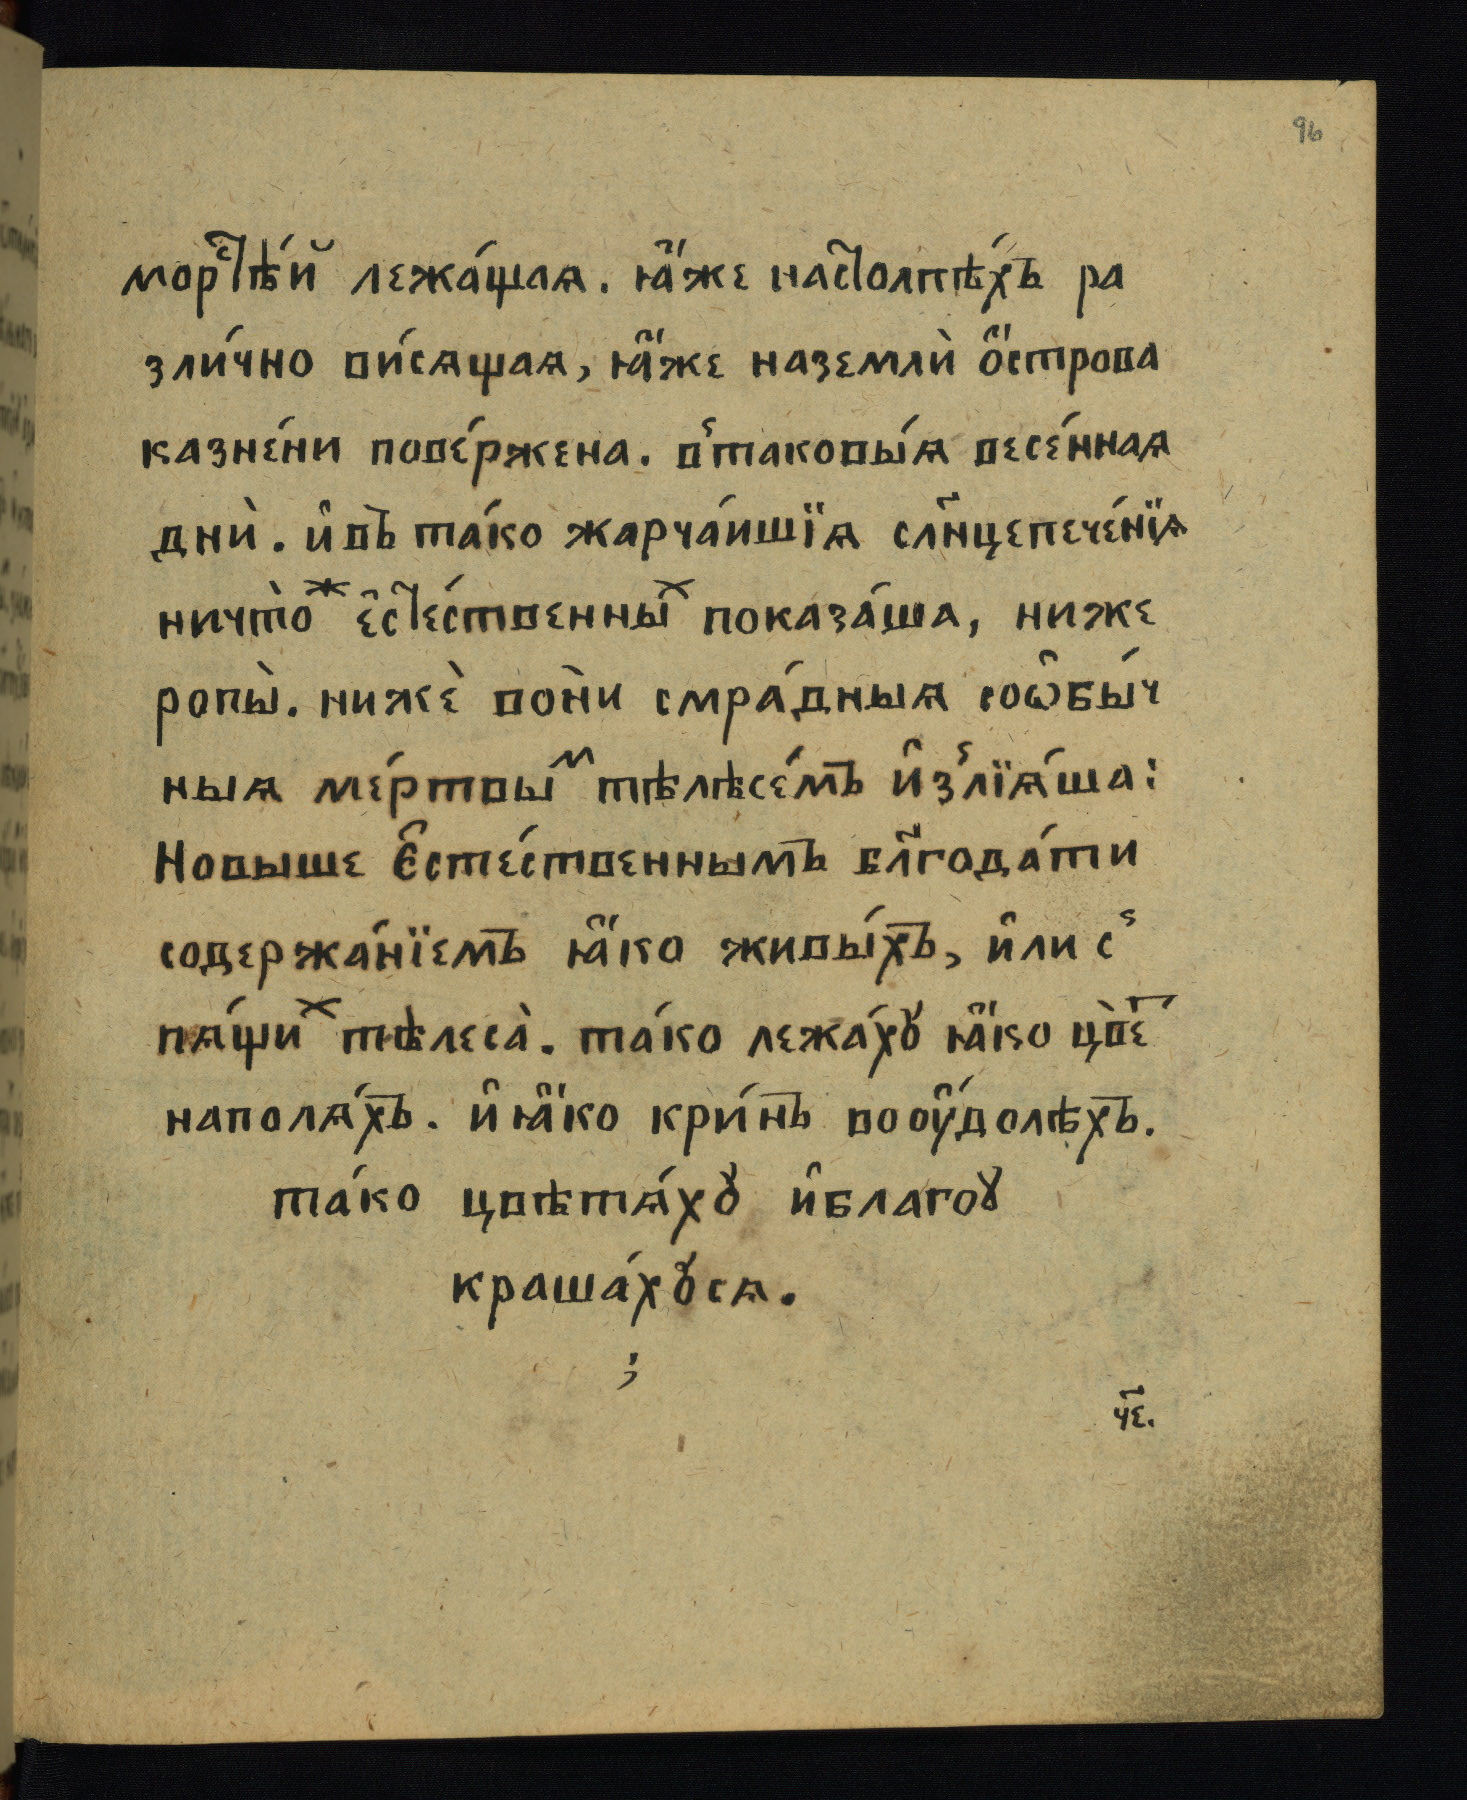 96
морстѣ́й лежа́щая. ꙗ҆́же настолпѣ́хъ ра
зли́чно ви́сящая, ꙗ҆́же наземлѝ ѻ҆́строва
казне́ни пове́ржена. в̾таковы́я весе́нная
днѝ. и҆въ та́ко жарча́ишїя сл҃нцепече́нїѧ
ничто̀ж є҆сте́ственных показа́ша, ниже
ропы̀. нижѐ во́ни смра́дныя соѡ҆бы́ч
ныя ме́ртвым тѣлѣсе́мъ и҆з̾лїѧ́ша:
Новыше Є҆сте́ственнымъ бл҃года́ти
содержа́нїемъ ꙗ҆́ко живы́хъ, и҆ли с̾
пѧ́щих тѣлеса̀. та́ко лежа́хꙋ ꙗ҆́ко цвѣ́т
наполя́хъ. и҆ ꙗ҆́ко кри́нъ воᲂу҆́долѣхъ.
та́ко цвѣтя́хꙋ и҆благоꙋ
краша́хꙋся.
;
ч҃є.